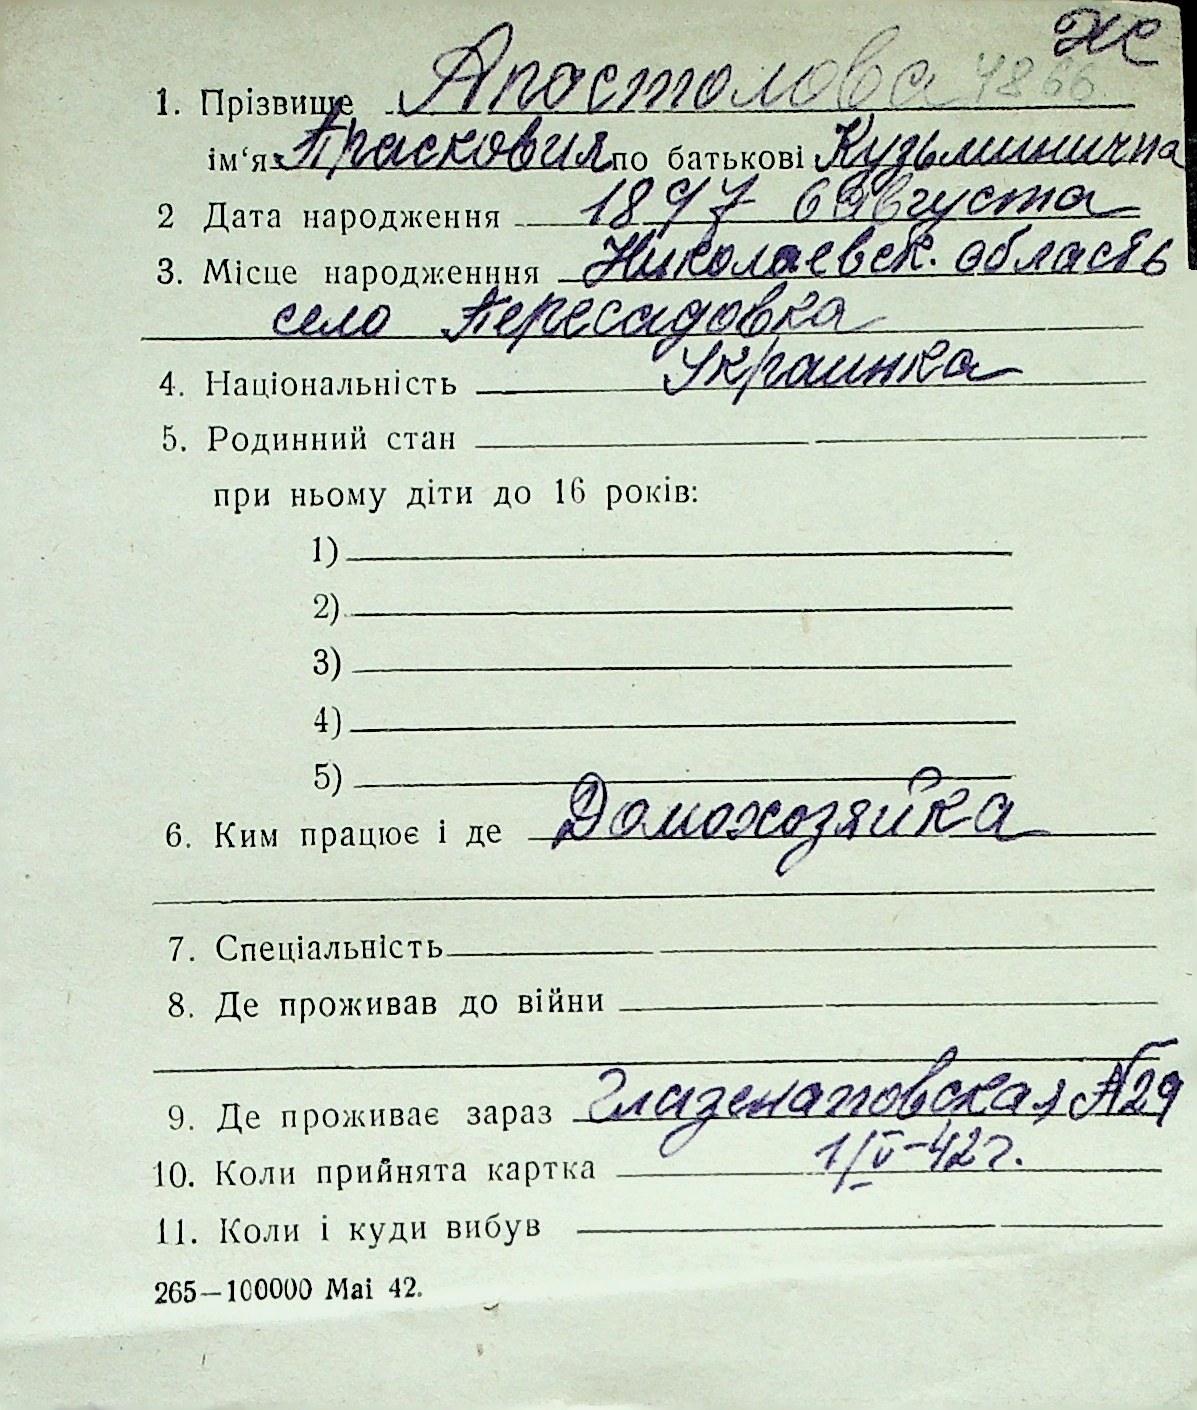 Ж
1. Прізвище Апостолова 4866
ім‘я Прасковия по батькові Кузьминична
2 Дата народження 1897 6 Августа
3. Місце народженння Николаевск. область
село Пересадовка
4. Національність Украинка
5. Родинний стан
при ньому діти до 16 років:
1)
2)
3)
4)
5)
6. Ким працює і де Домохозяйка
7. Спеціальність
8. Де проживав до війни
9. Де проживає зараз Глазенаповская №29
10. Коли прийнята картка 1/V-42г.
11. Коли і куди вибув
265—100000 Mai 42.